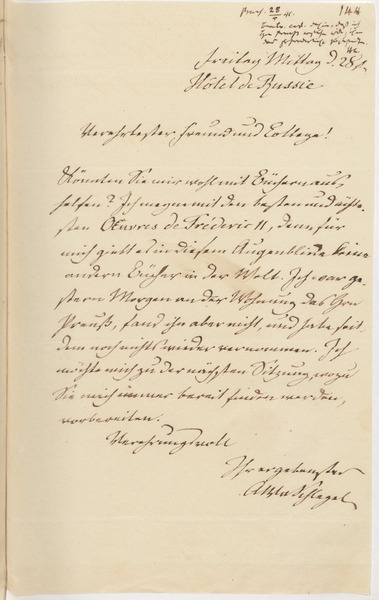 144
Freitag Mittag d. 28
Hôtel de Russie
Verehrtester Freund und College!
Könnten Sie mir wohl mit Büchern aus
helfen? Ich meyne mit den besten und
sten Œuvres de Fréderic II, denn für
mich giebt es in diesem Augenblicke keine
andern Bücher in der Welt. Ich war ge-
stern Morgen an der Wohnung des Hrn
Preuß, fand ihn aber nicht, und habe seit
dem noch nichts wieder vernommen. Ich
möchte mich zu der nächsten Sitzung, wozu
Sie mich immer bereit finden werden,
vorbereiten.
Verehrungsvoll
Ihr ergebenster
AWvSchlegel